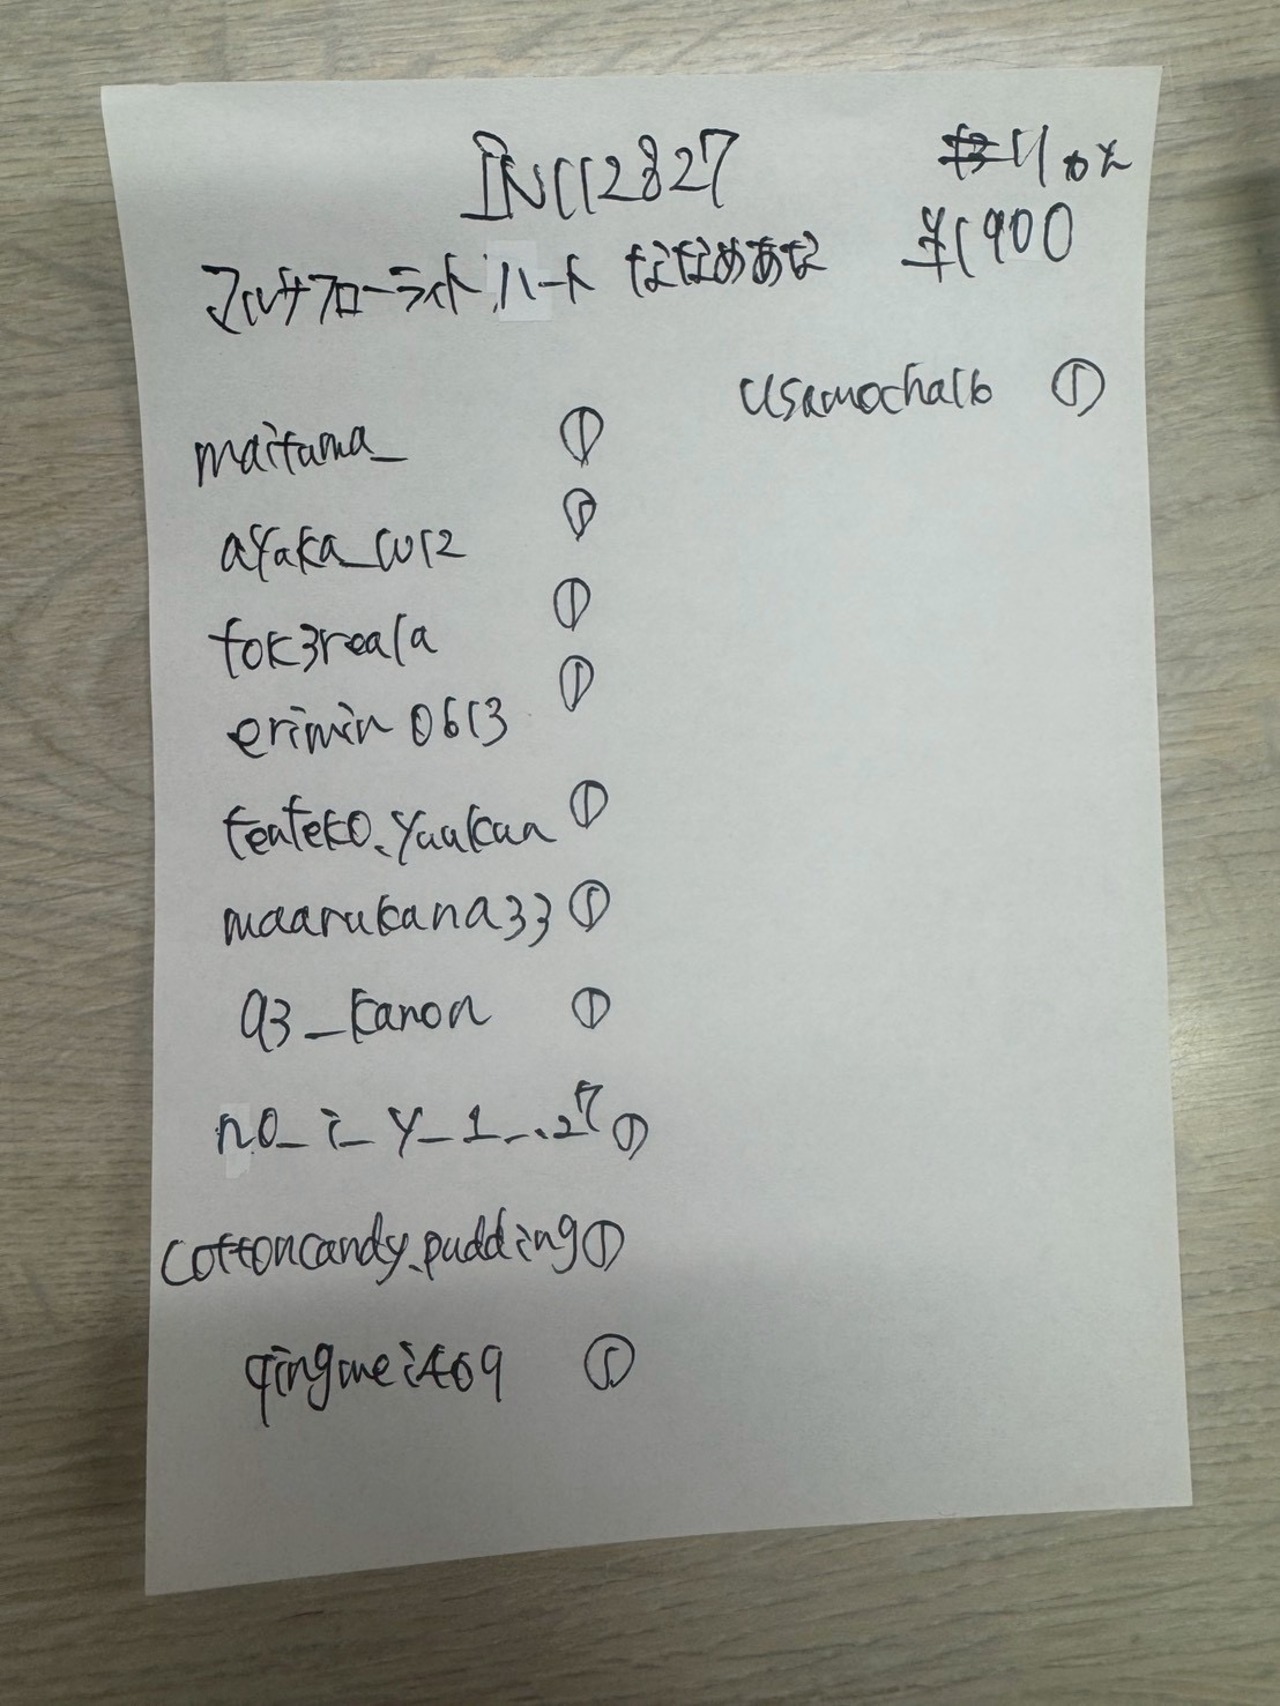 IN112827
¥1900
マルチフローライト ハート ななめあな
maitama_ ①
ayaka_1012 ①
tok3reala ①
erimin0613 ①
tenteko.yuukun ①
maarukana33 ①
93_kanon ①
n0_i_y_1_.27 ①
cottoncandy.pudding ①
qingmei409 ①
usamocha16 ①